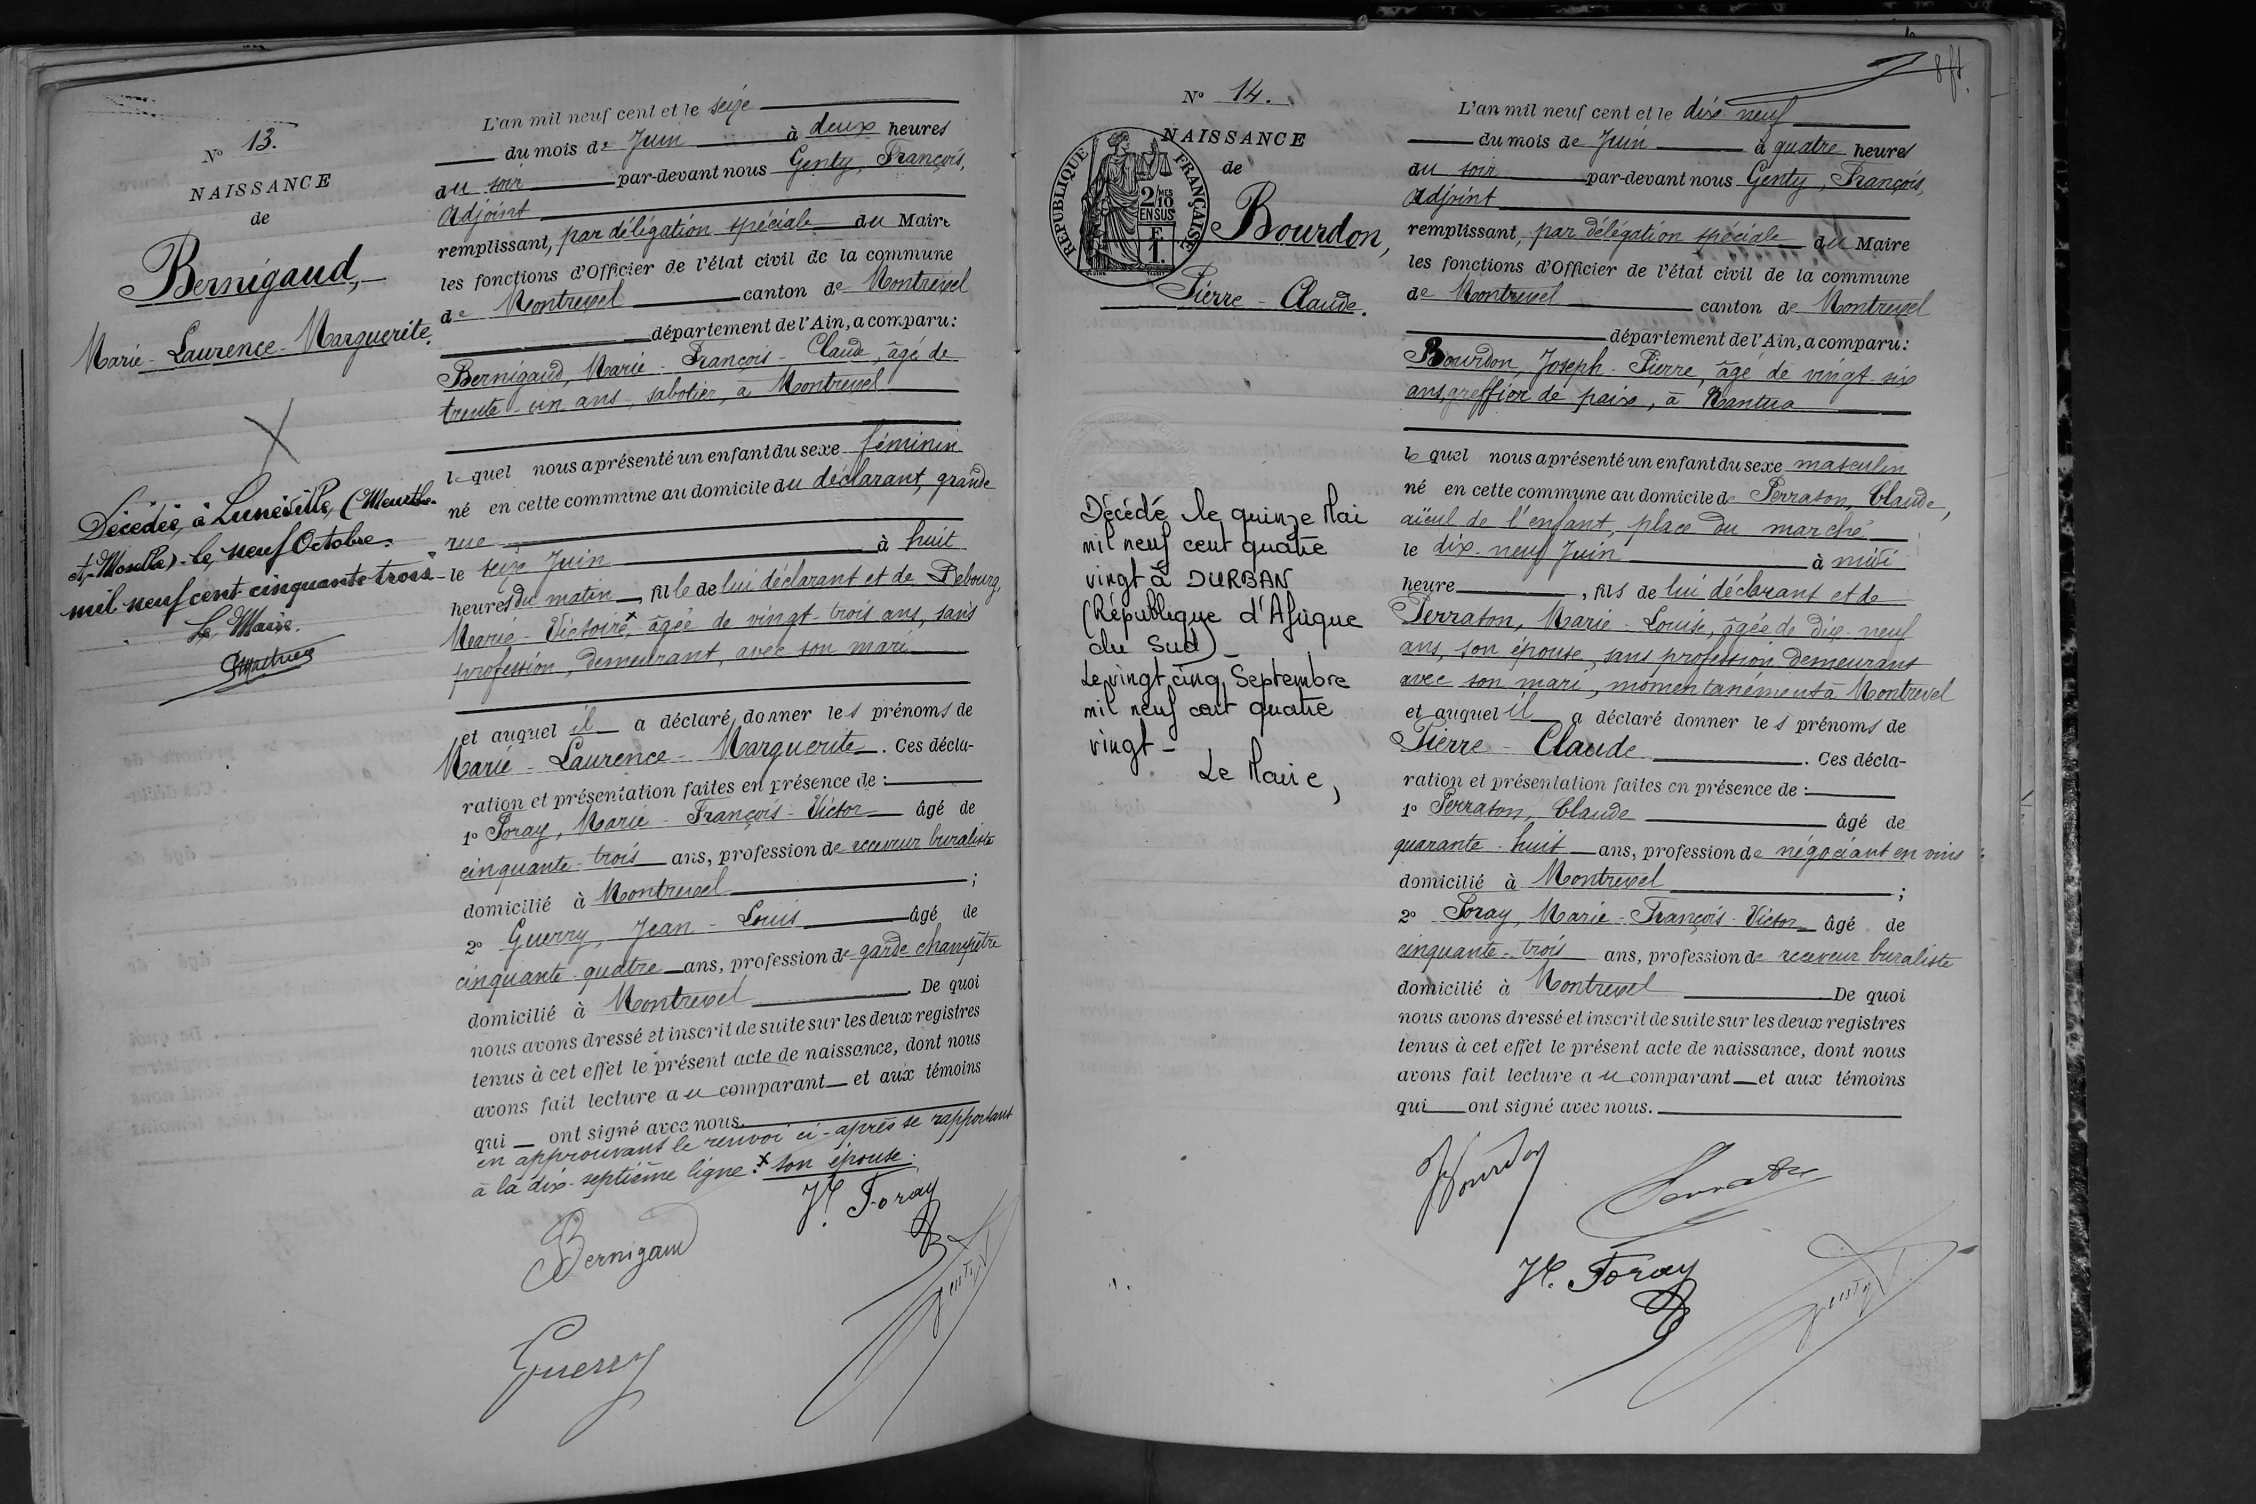 N° 13.
NAISSANCE
de
Bernigaud,
Marie-Laurence-Marguerite.
Décédée, à Lunéville, (Meurthe-
et-Moselle) - le, neuf Octobre.
mil neuf cent cinquante trois -
Le Maire.
L'an mil neuf cent et le seize
du mois de Juin à deux heures
du soir par-devant nous Genty, François,
Adjoint
remplissant, par délégation spéciale du Maire
les fonctions d'Officier de l'état civil de la commune
de Montrevel canton de Montrevel
département de l'Ain, a comparu:
Bernigaud, Marie-François-Claude, âgé de
trente-un ans, sabotier, à Montrevel
lequel nous a présenté un enfant du sexe féminin
né en cette commune au domicile du déclarant, grande
rue
le seize Juin à huit
heures du matin, fille de lui déclarant et de Debourg,
Marie-Victoire x, âgée de vingt-trois ans, sans
profession, demeurant, avec son mari
et auquel il a déclaré donner les prénoms de
Marie-Laurence-Marguerite. Ces décla-
ration et présentation faites en présence de:
1° Foray, Marie-François-Victor âgé de
cinquante-trois ans, profession de receveur buraliste
domicilié à Montrevel;
2° Guerry, Jean-Louis âgé de
cinquante-quatre ans, profession de garde champêtre
domicilié à Montrevel. De quoi
nous avons dressé et inscrit de suite sur les deux registres
tenus à cet effet le présent acte de naissance, dont nous
avons fait lecture au comparant et aux témoins
qui ont signé avec nous.
en approuvant le renvoi ci-après se rapportant
à la dix-septième ligne. x son épouse.
Vt. Foray
Bernigaud
Genty
Guerry
8 ft.
N° 14.
NAISSANCE
de
REPUBLIQUE FRANÇAISE
2/10MES
EN SUS
F
1.
Bourdon,
Pierre-Claude.
Décédé le quinze Mai
mil neuf cent quatre
vingt à DURBAN
(République d'Afrique
du Sud) -
Le vingt cinq Septembre
mil neuf cent quatre
vingt -
Le Maire,
L'an mil neuf cent et le dix-neuf
du mois de Juin à quatre heures
du soir par-devant nous Genty, François,
Adjoint
remplissant, par délégation spéciale du Maire
les fonctions d'Officier de l'état civil de la commune
de Montrevel canton de Montrevel
département de l'Ain, a comparu:
Bourdon, Joseph-Pierre, âgé de vingt-six
ans, greffier de paix, à Nantua
lequel nous a présenté un enfant du sexe masculin
né en cette commune au domicile de Perraton, Claude,
aïeul de l'enfant, place du marché
le dix-neuf Juin à midi
heure, fils de lui déclarant et de
Perraton, Marie-Louise, âgée de dix-neuf
ans, son épouse, sans profession demeurant
avec son mari, momentanément à Montrevel
et auquel il a déclaré donner les prénoms de
Pierre-Claude. Ces décla-
ration et présentation faites en présence de:
1° Perraton, Claude âgé de
quarante-huit ans, profession de négociant en vins
domicilié à Montrevel;
2° Foray, Marie-François-Victor âgé de
cinquante-trois ans, profession de receveur buraliste
domicilié à Montrevel De quoi
nous avons dressé et inscrit de suite sur les deux registres
tenus à cet effet le présent acte de naissance, dont nous
avons fait lecture au comparant et aux témoins
qui ont signé avec nous.
JBourdon
Perraton
Vt. Foray
Genty